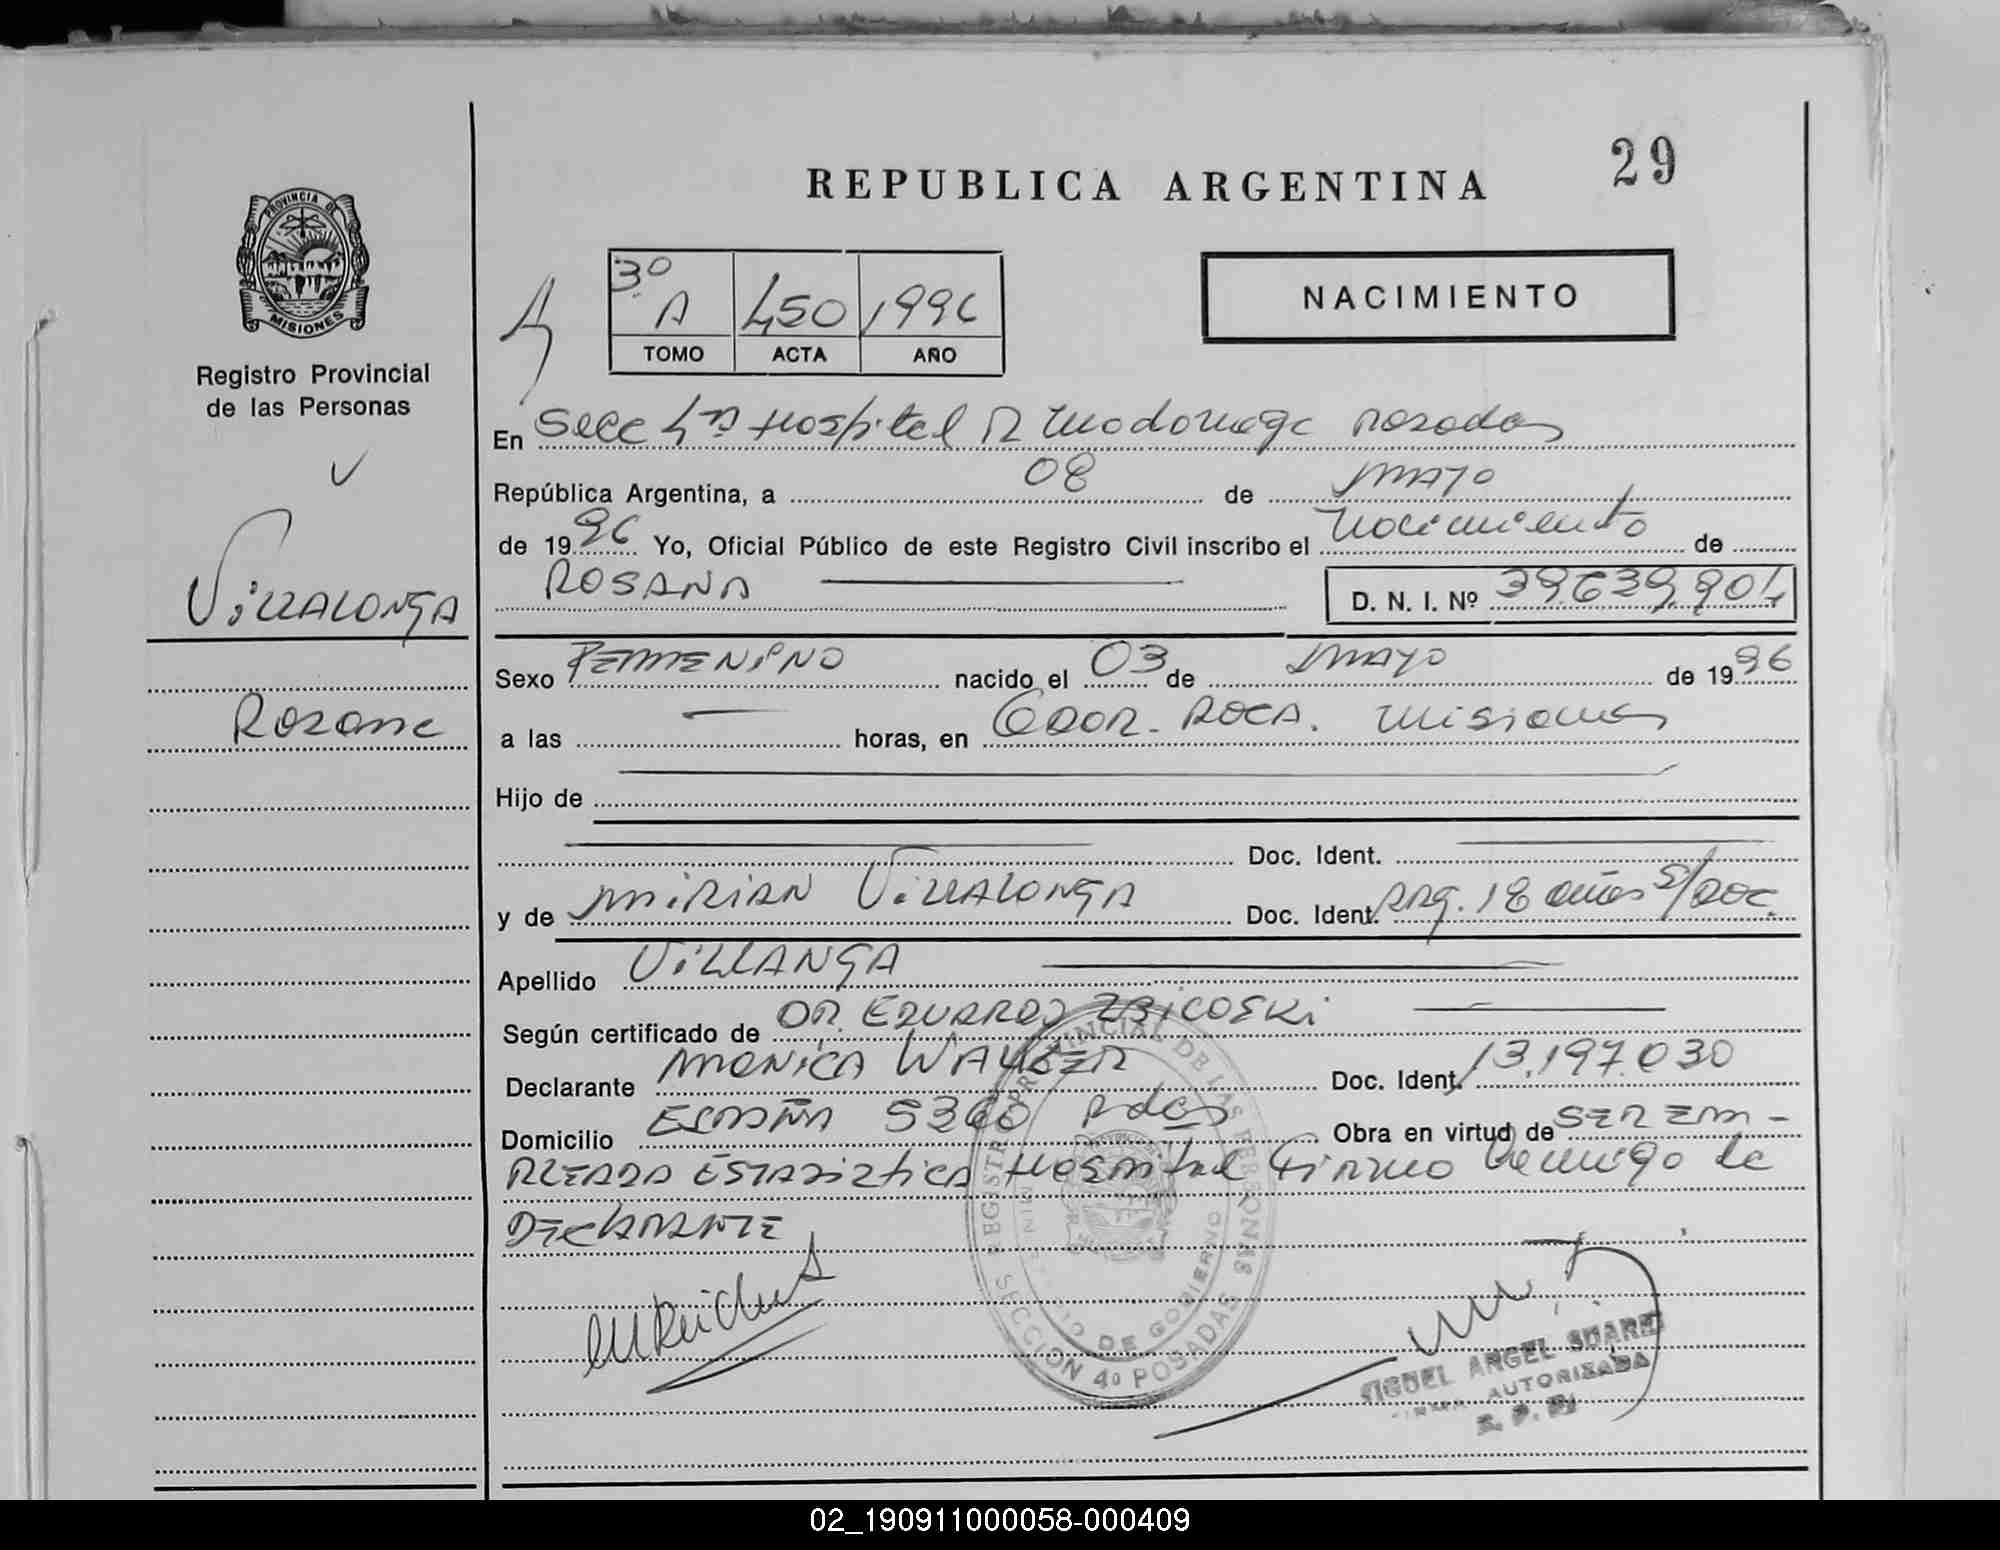 29
REPUBLICA ARGENTINA
PROVINCIA DE
MISIONES
Registro Provincial
de las Personas
3º
A 450 1996
TOMO ACTA AÑO
NACIMIENTO
En Secc 4ta Hospital R Madariaga Posadas
República Argentina, a 08 de MAYO
de 1996 Yo, Oficial Público de este Registro Civil inscribo el Nacimiento de
ROSANA D. N. I. Nº 39.639.904
VILLALONGA
Rosana
Sexo FEMENINO nacido el 03 de MAYO de 1996
a las — horas, en GDOR. ROCA. Misiones
Hijo de
Doc. Ident.
y de MIRIAN VILLALONGA Doc. Ident. ARG. 18 años S/DOC.
Apellido VILLANGA
Según certificado de DR. EDUARDO ZBICOSKI
Declarante MONICA Doc. Ident. 13.197.030
Domicilio ESPAÑA Pdas Obra en virtud de SER EM-
PLEADA ESTADISTICA Hospital Firma Conmigo la
DECLARANTE
REGISTRO PROVINCIAL DE LAS PERSONAS
DE GOBIERNO
SECCION 4º POSADAS
MIGUEL ANGEL SUAREZ
FIRMA AUTORIZADA
02_190911000058-000409